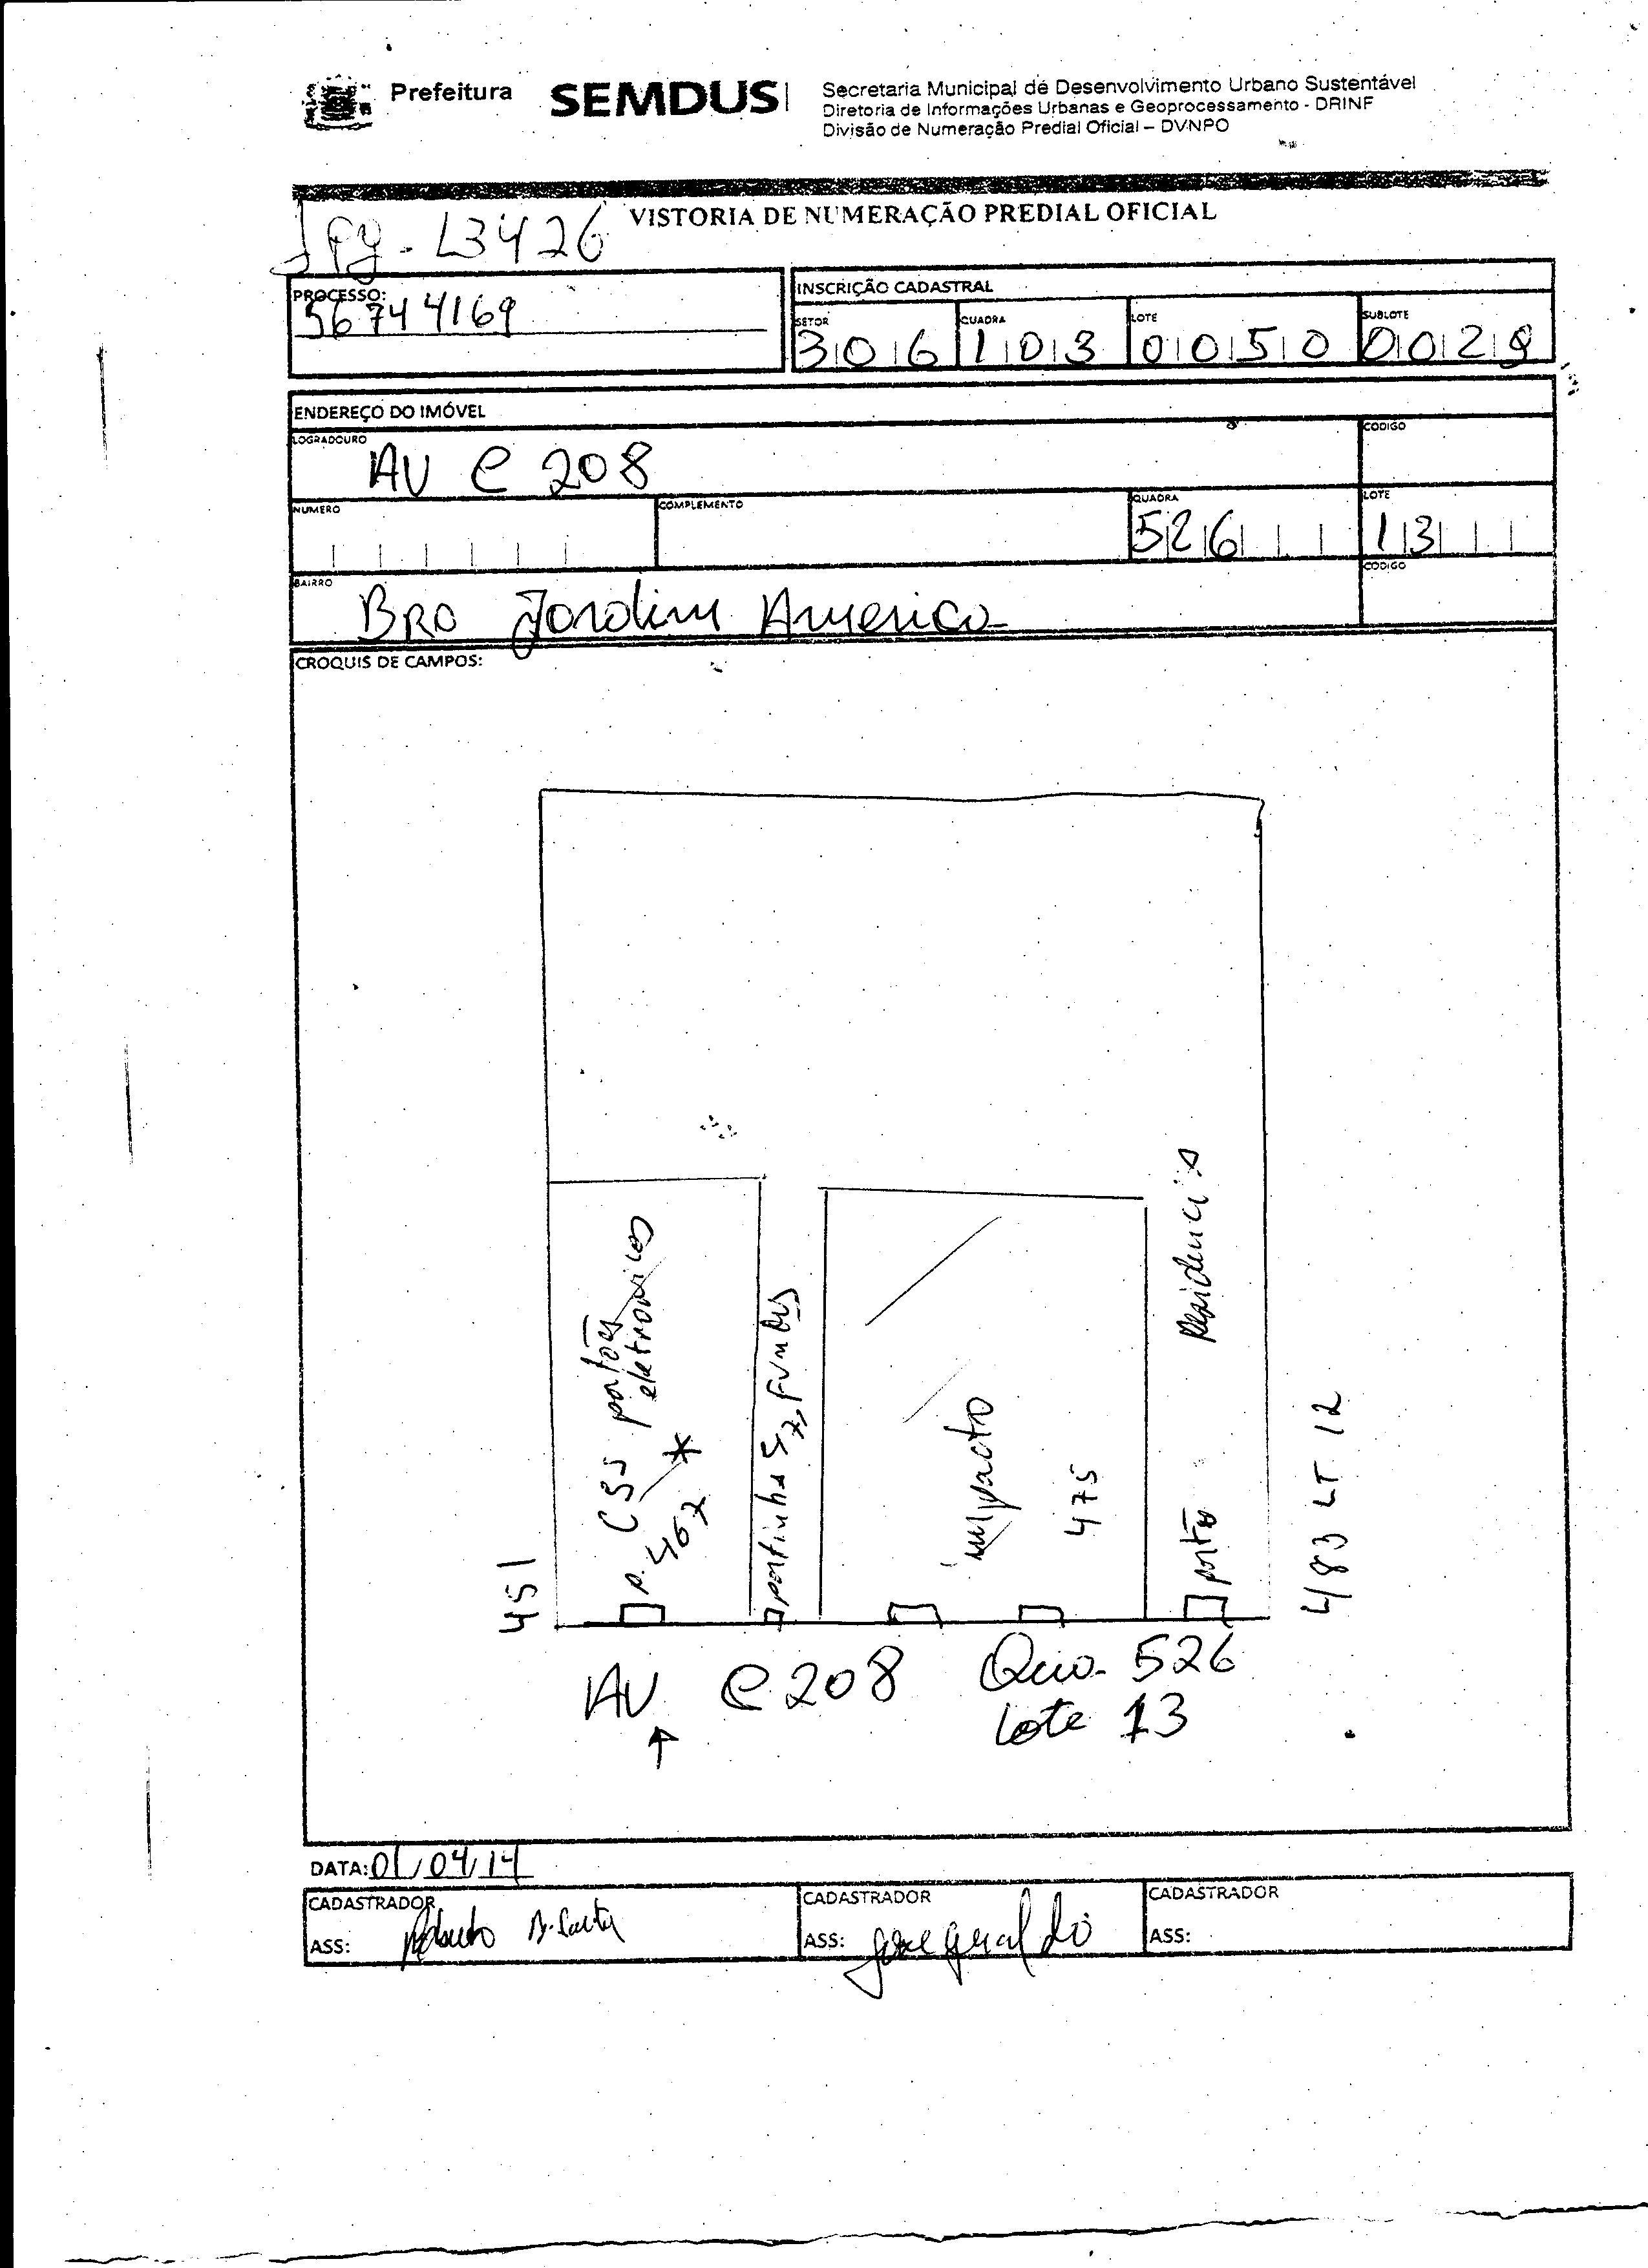 Prefeitura SEMDUS
Secretaria Municipal de Desenvolvimento Urbano Sustentável
Diretoria de Informações Urbanas e Geoprocessamento - DRINF
Divisão de Numeração Predial Oficial – DVNPO
VISTORIA DE NUMERAÇÃO PREDIAL OFICIAL
L3426
PROCESSO:
56744169
INSCRIÇÃO CADASTRAL
SETOR QUADRA LOTE SUBLOTE
306 103 0050 0029
ENDEREÇO DO IMÓVEL
LOGRADOURO CODIGO
AV C 208
NUMERO COMPLEMENTO QUADRA LOTE
526 13
BAIRRO CODIGO
BRO Jardim America
CROQUIS DE CAMPOS:
p. CSS portões
eletronicos
467 *
portinha p/ fundos
impacto
475
portão Residencia
451
483 LT 12
AV C 208 Qua. 526
Lote 13
DATA: 01/04/14
CADASTRADOR CADASTRADOR CADASTRADOR
ASS: Roberto ASS: Jose Geraldo ASS: